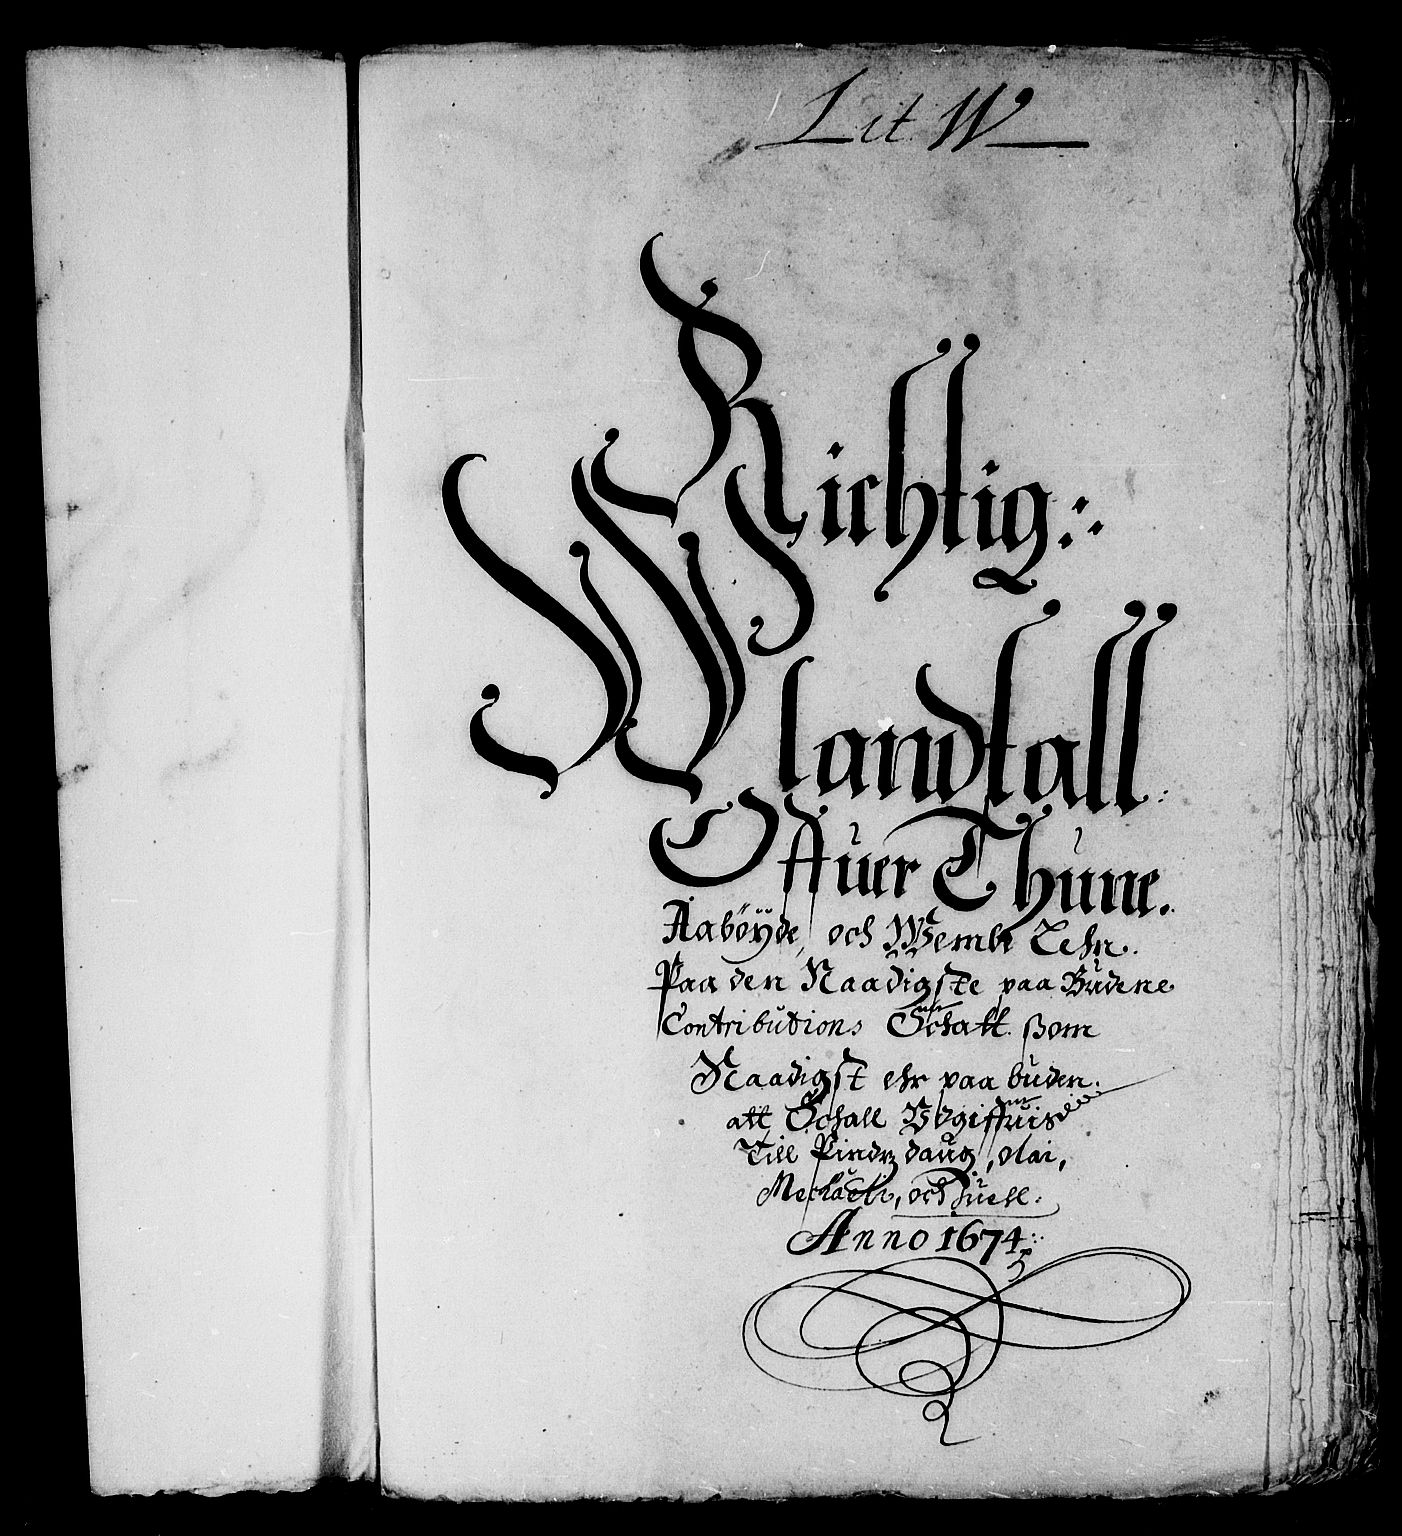 Lit W
Richtig:
Mandtall
Offuer Thune.
Aabÿyde, och Wemle Lehn.
Paa den Naadigste paa Budene
Contributions Schatt. som
Naadigst ehr paa buden.
att Schall Vdgiffuis
Till Pindtz daug, olai,
Mechaeli, och Juell.
Anno 1674